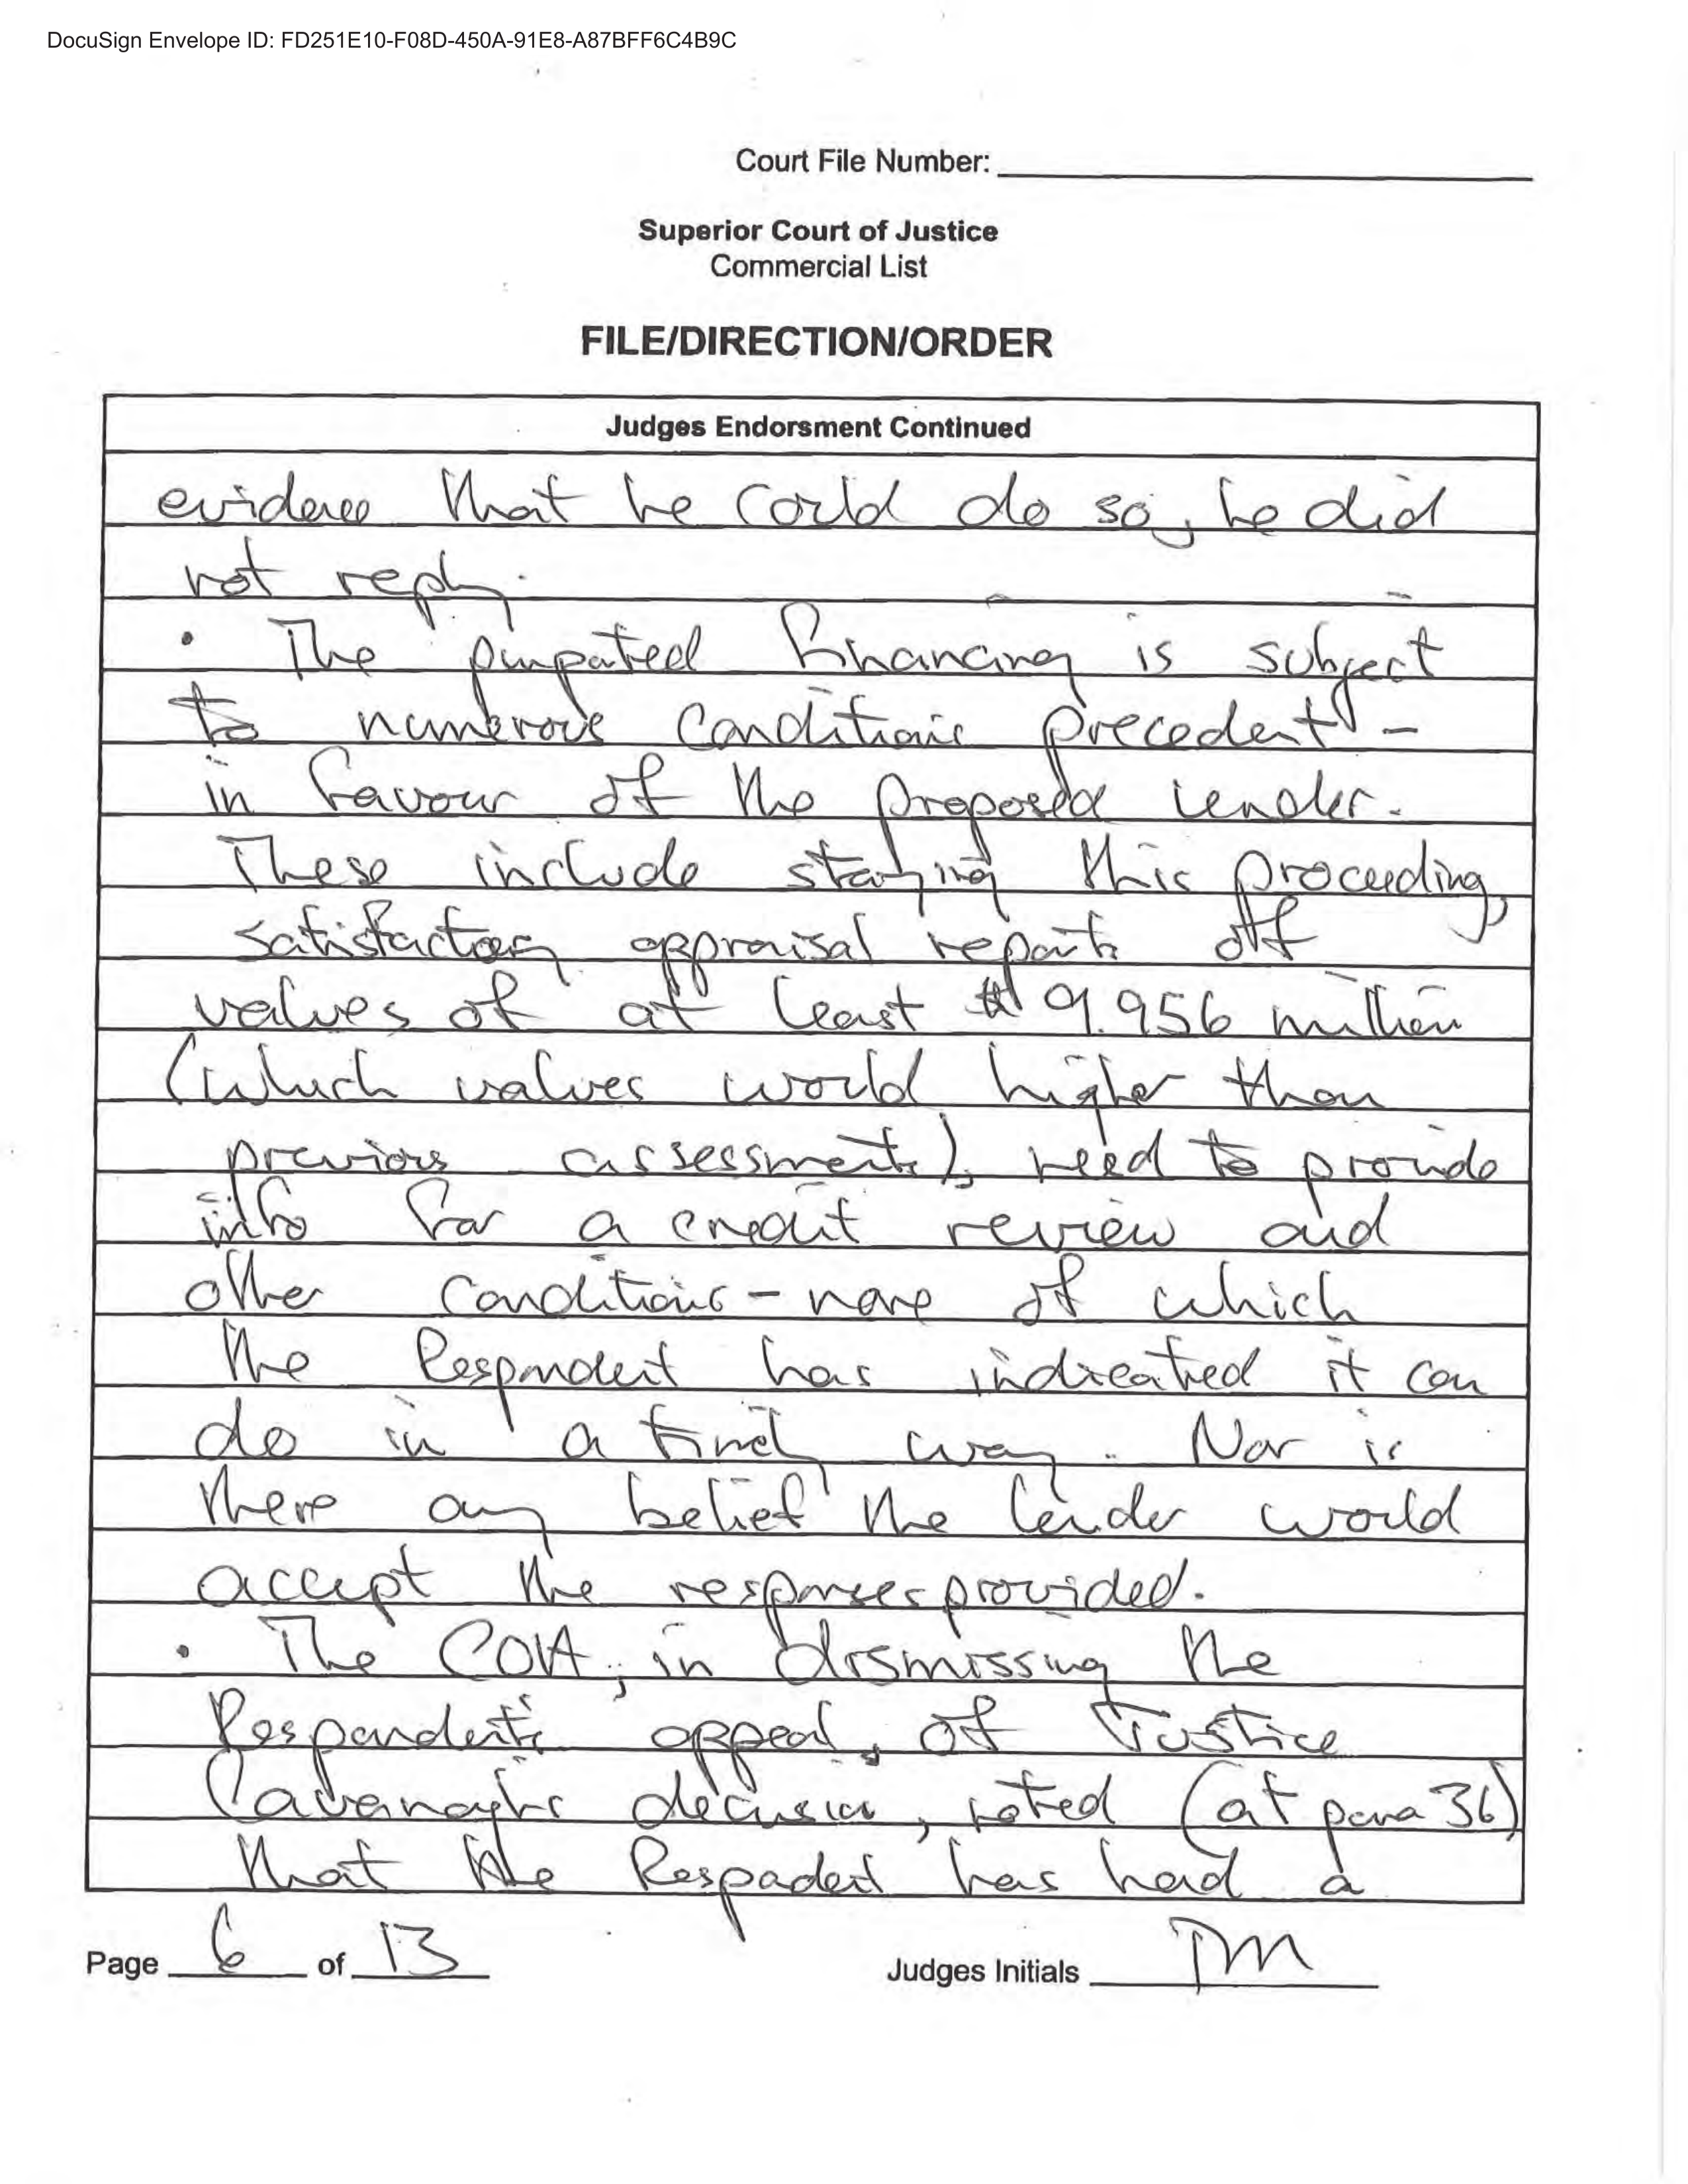 DocuSign Envelope ID: FD251E10-F08D-450A-91E8-A87BFF6C4B9C
Court File Number:
Superior Court of Justice
Commercial List
FILE/DIRECTION/ORDER
Judges Endorsment Continued
evidence that he could do so, he did
not reply.
• The purported financing is subject
to numerous conditions precedent -
in favour of the proposed lender.
These include staying this proceeding,
satisfactory appraisal reports of
values of at least $9.956 million
(which values would higher than
previous assessments), need to provide
info for a credit review and
other conditions - none of which
the Respondent has indicated it can
do in a timely way. Nor is
there any belief the lender would
accept the responses provided.
• The COA, in dismissing the
Respondent's appeal, of Justice
Cavanagh's decision, noted (at para 36)
that the Respondent has had a
Page 6 of 13
Judges Initials